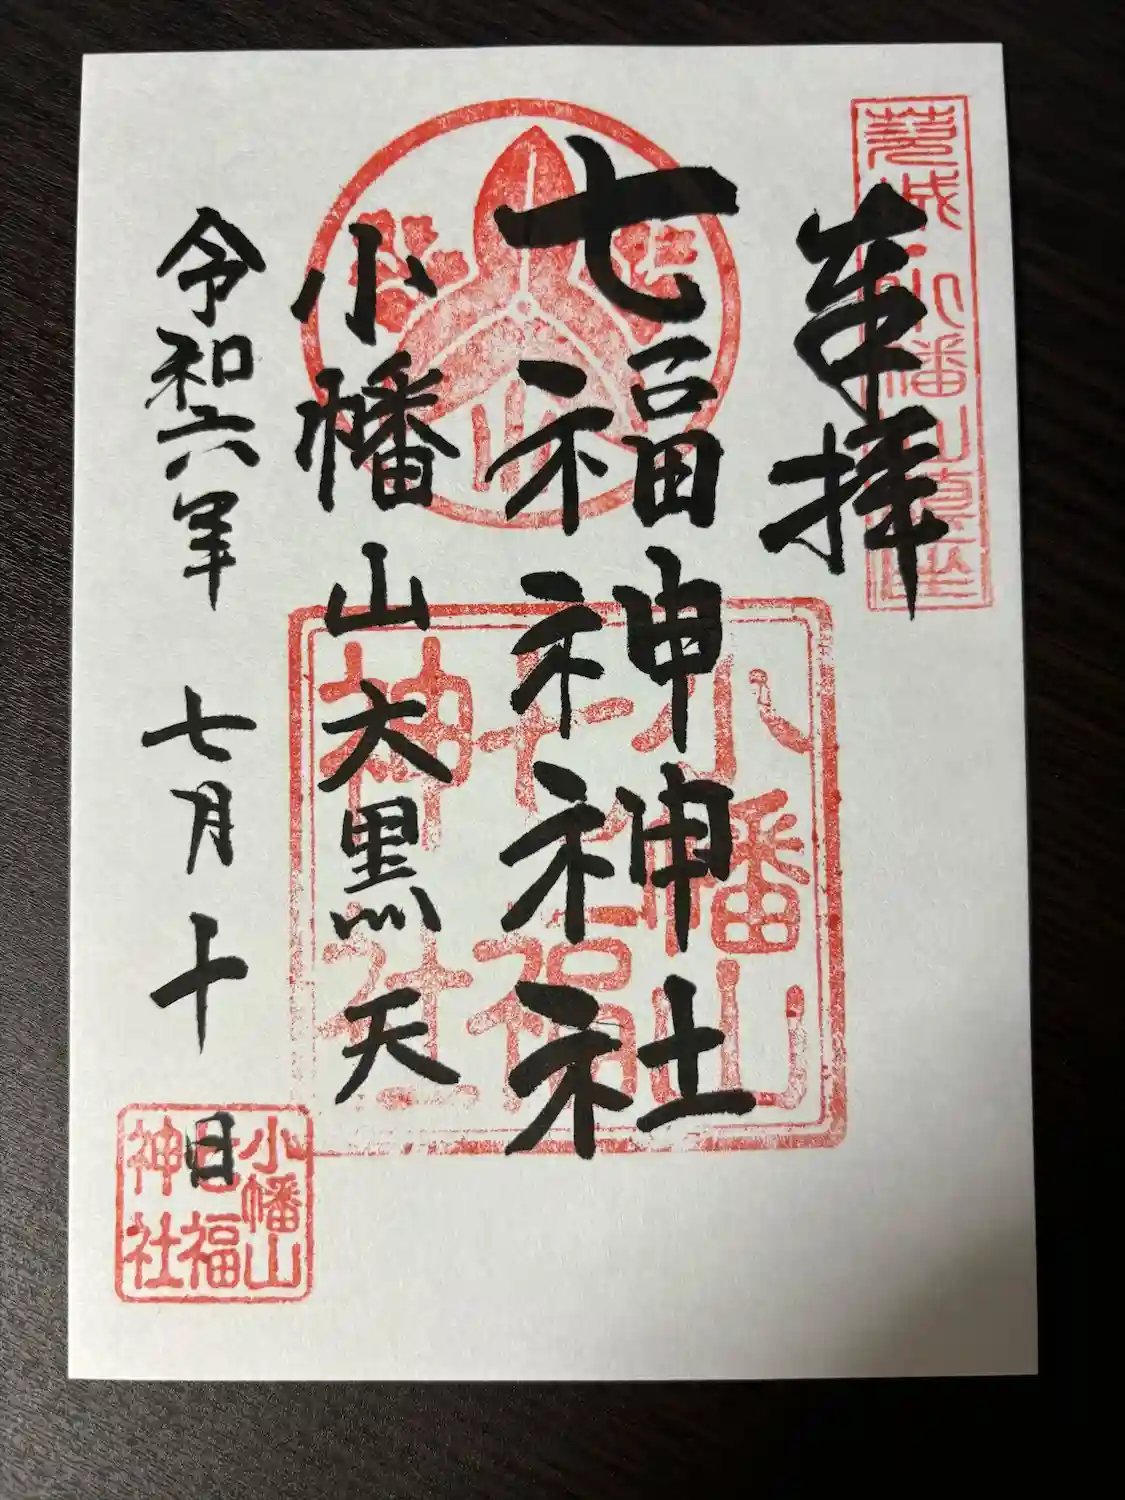 奉拝
七福神神社
小幡山大黒天
令和六年 七月十日
小幡山
小幡山
七福
神社
小幡山
七福
神社